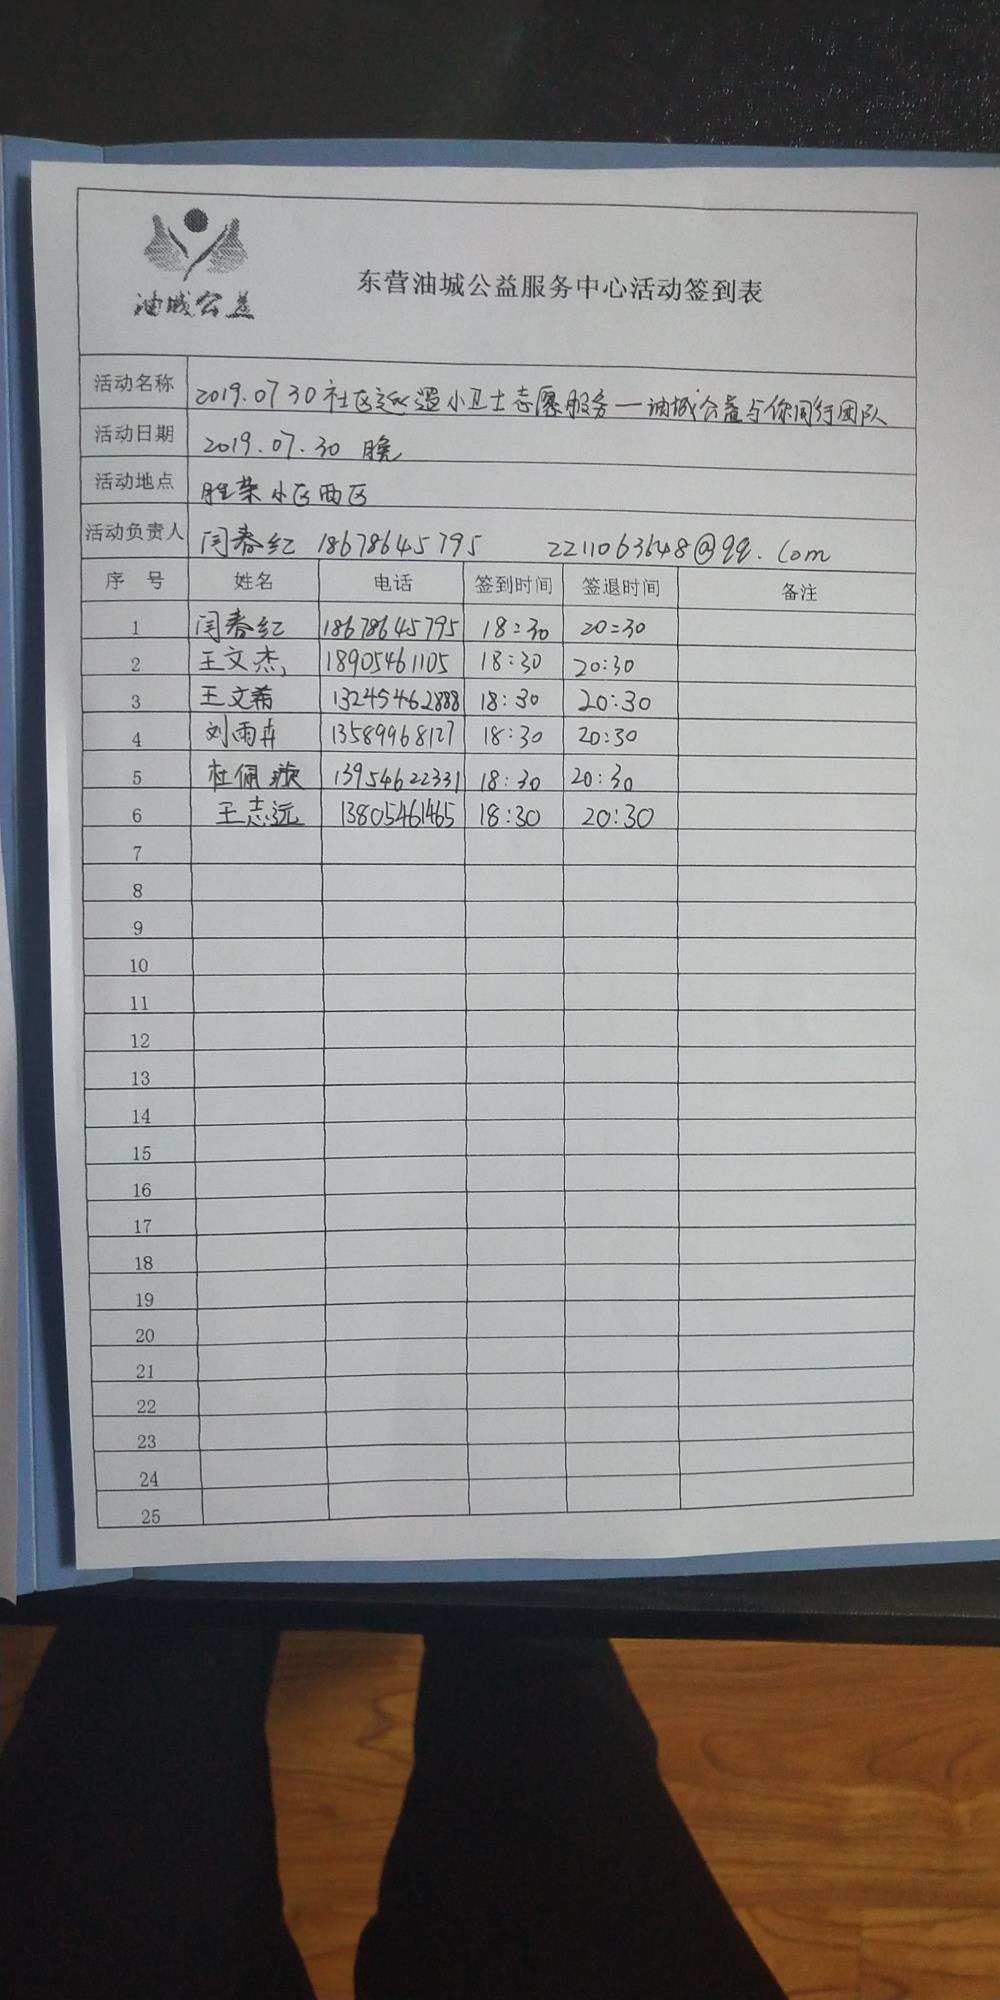 油城公益
东营油城公益服务中心活动签到表
活动名称 2019.07 30 社区巡逻小卫士志愿服务—油城公益与你同行团队
活动日期 2019.07.30 晚
活动地点 胜荣小区西区
活动负责人 闫春红 18678645795 2211063648@qq.com
序号 姓名 电话 签到时间 签退时间 备注
1 闫春红 18678645795 18:30 20:30
2 王文杰 18905461105 18:30 20:30
3 王文希 13245462888 18:30 20:30
4 刘雨卉 13589968127 18:30 20:30
5 杜佩璇 13954622331 18:30 20:30
6 王志远 13805461465 18:30 20:30
7
8
9
10
11
12
13
14
15
16
17
18
19
20
21
22
23
24
25